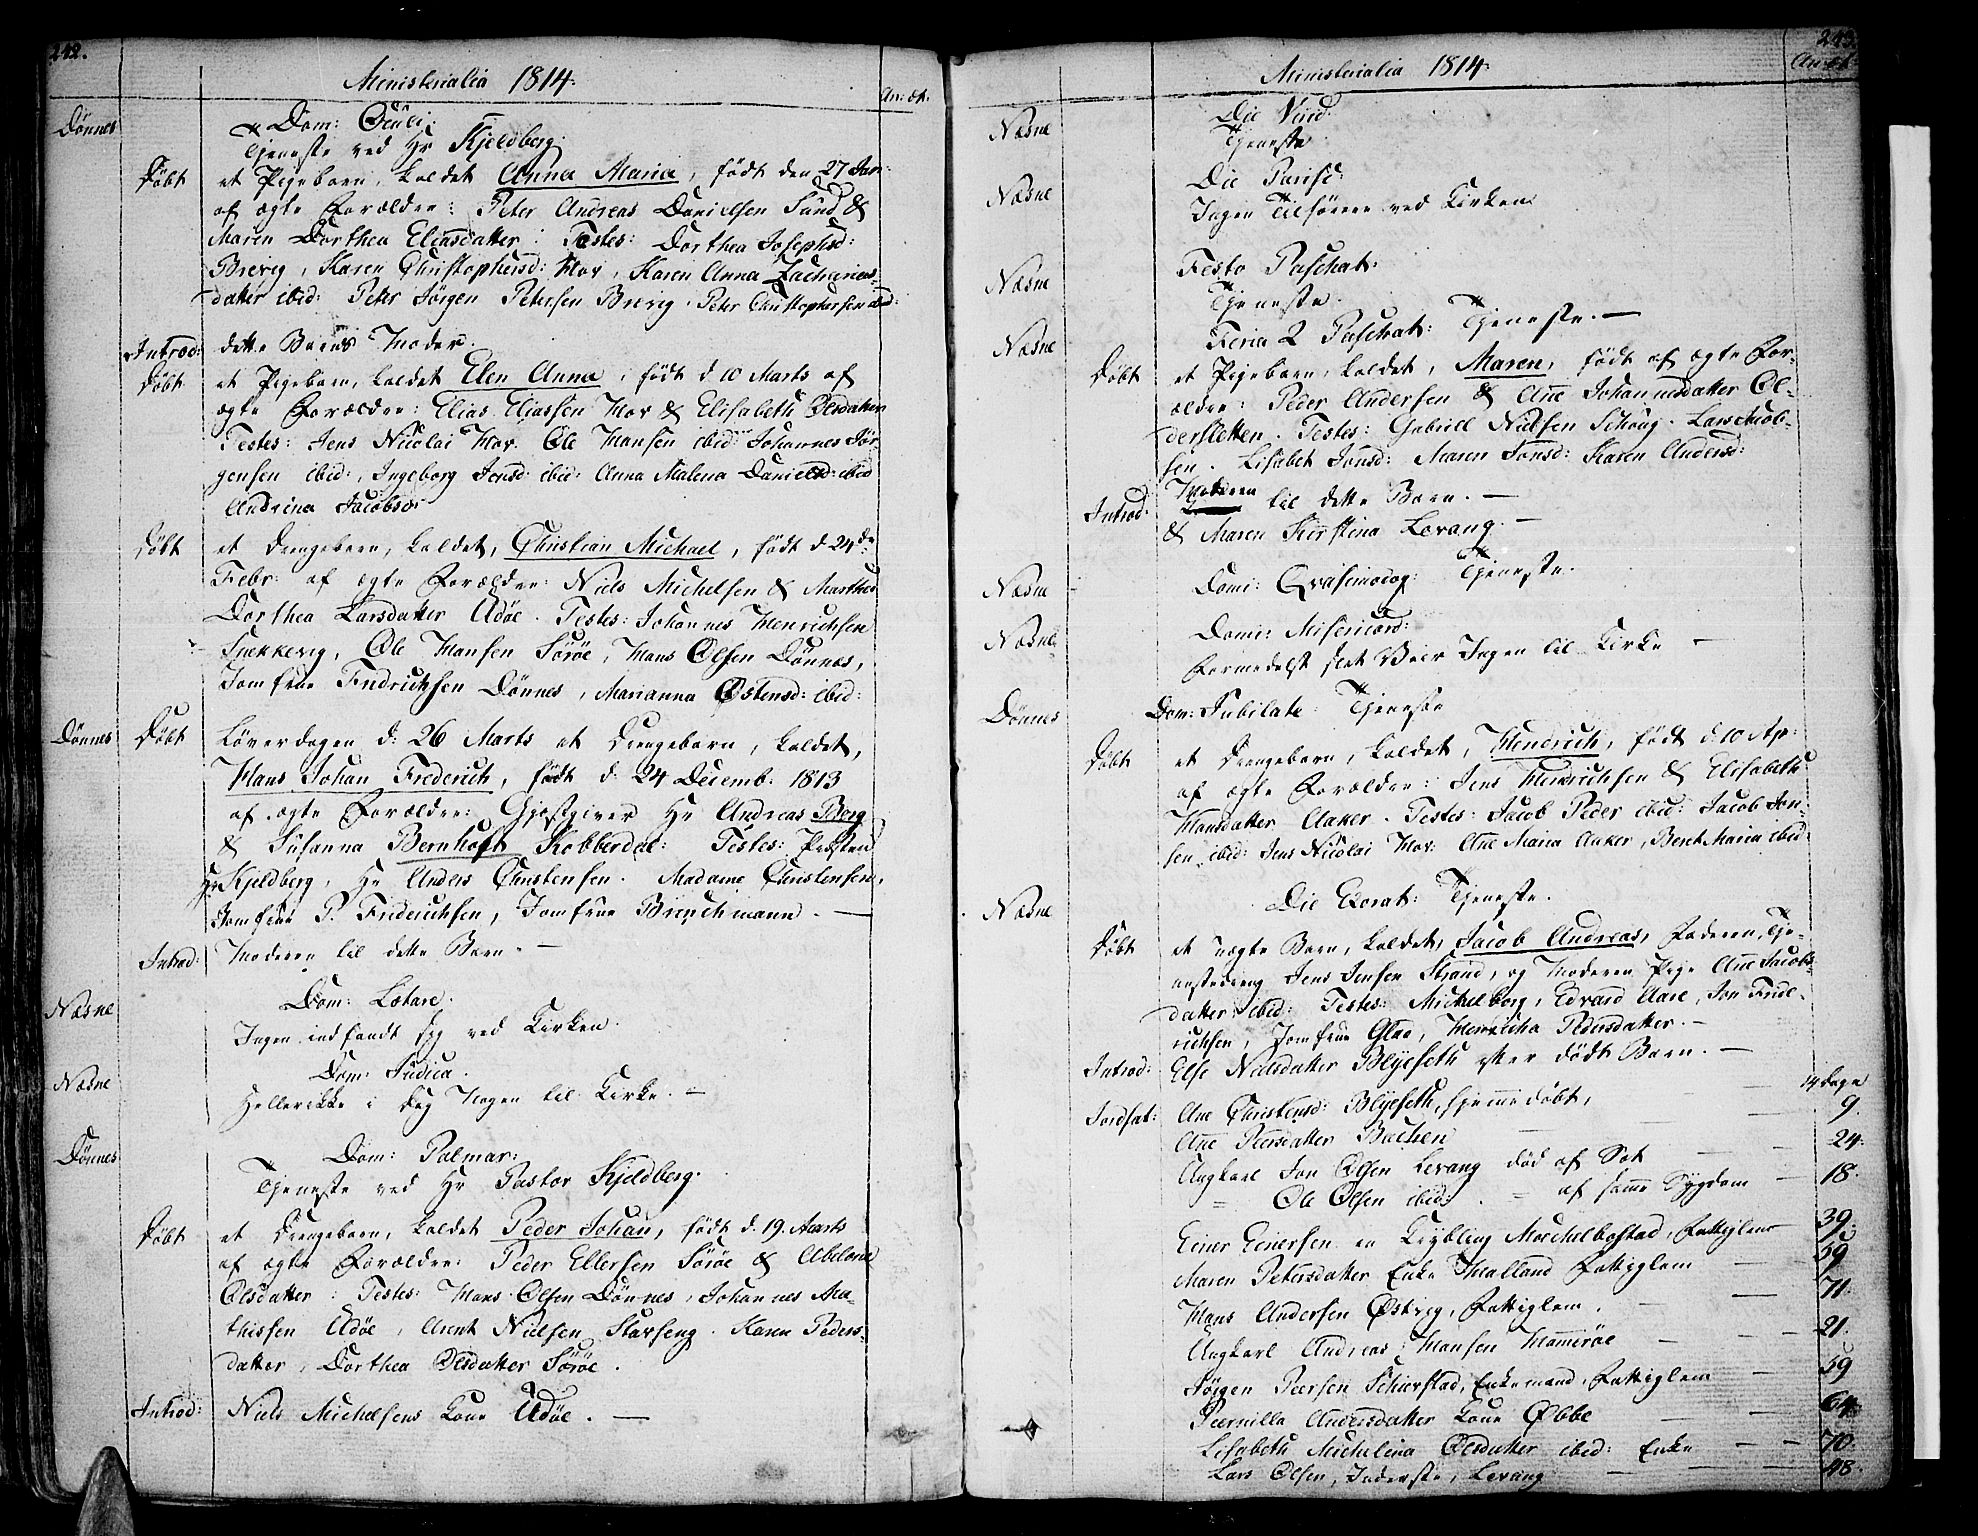 242.
Ministerialia 1814.
An: æt.
Dönnes Dom: Oculi.
Tjeneste ved Hr Kjeldberg.
Döbt et Pigebarn, kaldet Anna Maria, födt den 27 Jan:
af ægte Forældre: Peter Andreas Danielsen Sund &
Maren Dorthea Eliasdatter. Testes: Dorthea Josephsd:
Brevig, Karen Christophersd: Mov, Karen Anna Zacharias-
datter ibid: Peter Jörgen Petersen Brevig, Peter Christophersen ibd:
Introd: dette Barns Moder.
Döbt et Pigebarn, kaldet Elen Anna, födt d 10 Marts af
ægte Forældre: Elias Eliassen Mov & Elisabeth Olsdatter
Testes: Jens Nicolai Mov. Ole Hansen ibid: Johannes Jör-
gensen ibid:, Ingeborg Jensd: ibid: Anna Malena Danielsd: ibid
Andrina Jacobsd:
Döbt et Drengebarn, kaldet, Christian Michael, födt d 24de
Febr: af ægte Forældre: Niels Michelsen & Marthe
Dorthea Larsdatter Udöe. Testes: Johannes Henrichsen
Snekkevig, Ole Hansen Söröe, Hans Olsen Dönnes,
Jomfrue Fridrichsen Dönnes, Marianna Östensd: ibid:
Dönnes Döbt Löverdagen d: 26 Marts et Drengebarn, kaldet,
Hans Johan Frederich, födt d: 24 Decemb: 1813
af ægte Forældre: Gjestgiver Hr Andreas Berg
& Susanna Bernhoft Kobberdal: Testes: Præsten
Hr Kjeldberg, Hr Anders Christensen. Madame Christensen,
Jomfrue P. Friderichsen, Jomfrue Brinchmann. —
Introd: Moderen til dette Barn. —
Næsne Dom: Lætare.
Ingen indfandt sig ved Kirken.
Næsne Dom: Judica.
Hellerikke i Dag Nogen til Kirke. —
Dönnes Dom: Palmar:
Tjeneste ved Hr Pastor Kjeldberg.
Döbt et Drengebarn, kaldet Peder Johan, födt d. 19. Marts
af ægte Forældre: Peder Ellersen Söröe & Abelone
Olsdatter: Testes: Hans Olsen Dönnes, Johannes Ma-
thissen Udöe, Arent Nielsen Stavseng. Karen Peders-
datter, Dorthea Olsdatter Söröe.
Introd: Niels Michelsens Kone Udöe. —
243.
Ministerialia 1814.
An: æt:
Næsne Die Virid:
Tjeneste
Næsne Die Parisc:
Ingen Tilhörere ved Kirken
Næsne Festo Paschat:
Tjeneste.
Næsne Feria 2 Paschat: Tjeneste. —
Döbt et Pigebarn, kaldet, Maren, födt af ægte For-
ældre: Peder Andersen & Ane Johannisdatter Ol-
dersletten. Testes: Gabriel Nielsen Schoug. Lars Jacob-
sen. Lisabet Jonsd: Maren Jonsd: Karen Andersd:
Introd: Moderen til dette Barn. —
& Maren Kirstina Levang. —
Næsne Domi: Qvasimodog: Tjeneste.
Næsne Domi: Misericord:
Formedelst slet Veir Ingen til Kirke —
Dönnes Dom: Jubilate. Tjeneste
Döbt et Drengebarn, kaldet, Hendrich, födt d. 10 Ap:
af ægte Forældre: Jens Henrichsen & Elisabeth
Hansdatter Aaker. Testes: Jacob Peder ibid: Jacob Jon-
sen ibid: Jens Nicolai Mov: Ane Maria Aaker, Beret Maria ibid:
Næsne Die Exorat: Tjeneste.
Döbt et uægte Barn, kaldet, Jacob Andreas, Faderen, Tje-
nestedreng Jens Jensen Strand, og Moderen Pige Ane Jacobs-
datter ibid: Testes: Michelborg, Edvard Aare, Jon Frid-
richsen, Jomfrue Glad, Henricha Pedersdatter. —
Introd: Else Nielsdatter Blyeseth efter dödt Barn. —
Jordsat: Ane Christensd: Blyeseth, hjemmedöbt, — 14 Dage
Ane Peersdatter Bachen — 9.
Ungkarl Jon Olsen Levang död af Sot — 24.
" Ole Olsen ibid: " af samme Sygdom — 18.
Einer Einersen en Krybling Michelbostad, Fattiglem 39.
Maren Petersdatter Enke Halland Fattiglem — 59
Hans Andersen Østvig, Fattiglem. — 71.
Ungkarl Andreas Hansen Hamröe — 21.
Jörgen Peersen Schierstad, Enkemand, Fattiglem — 59
Peernilla Andersdatter Kone Øbbe — 64.
Lisabeth Michelina Olsdatter ibid: Enke — 70.
Lars Olsen, Inderste, Levang — 48.